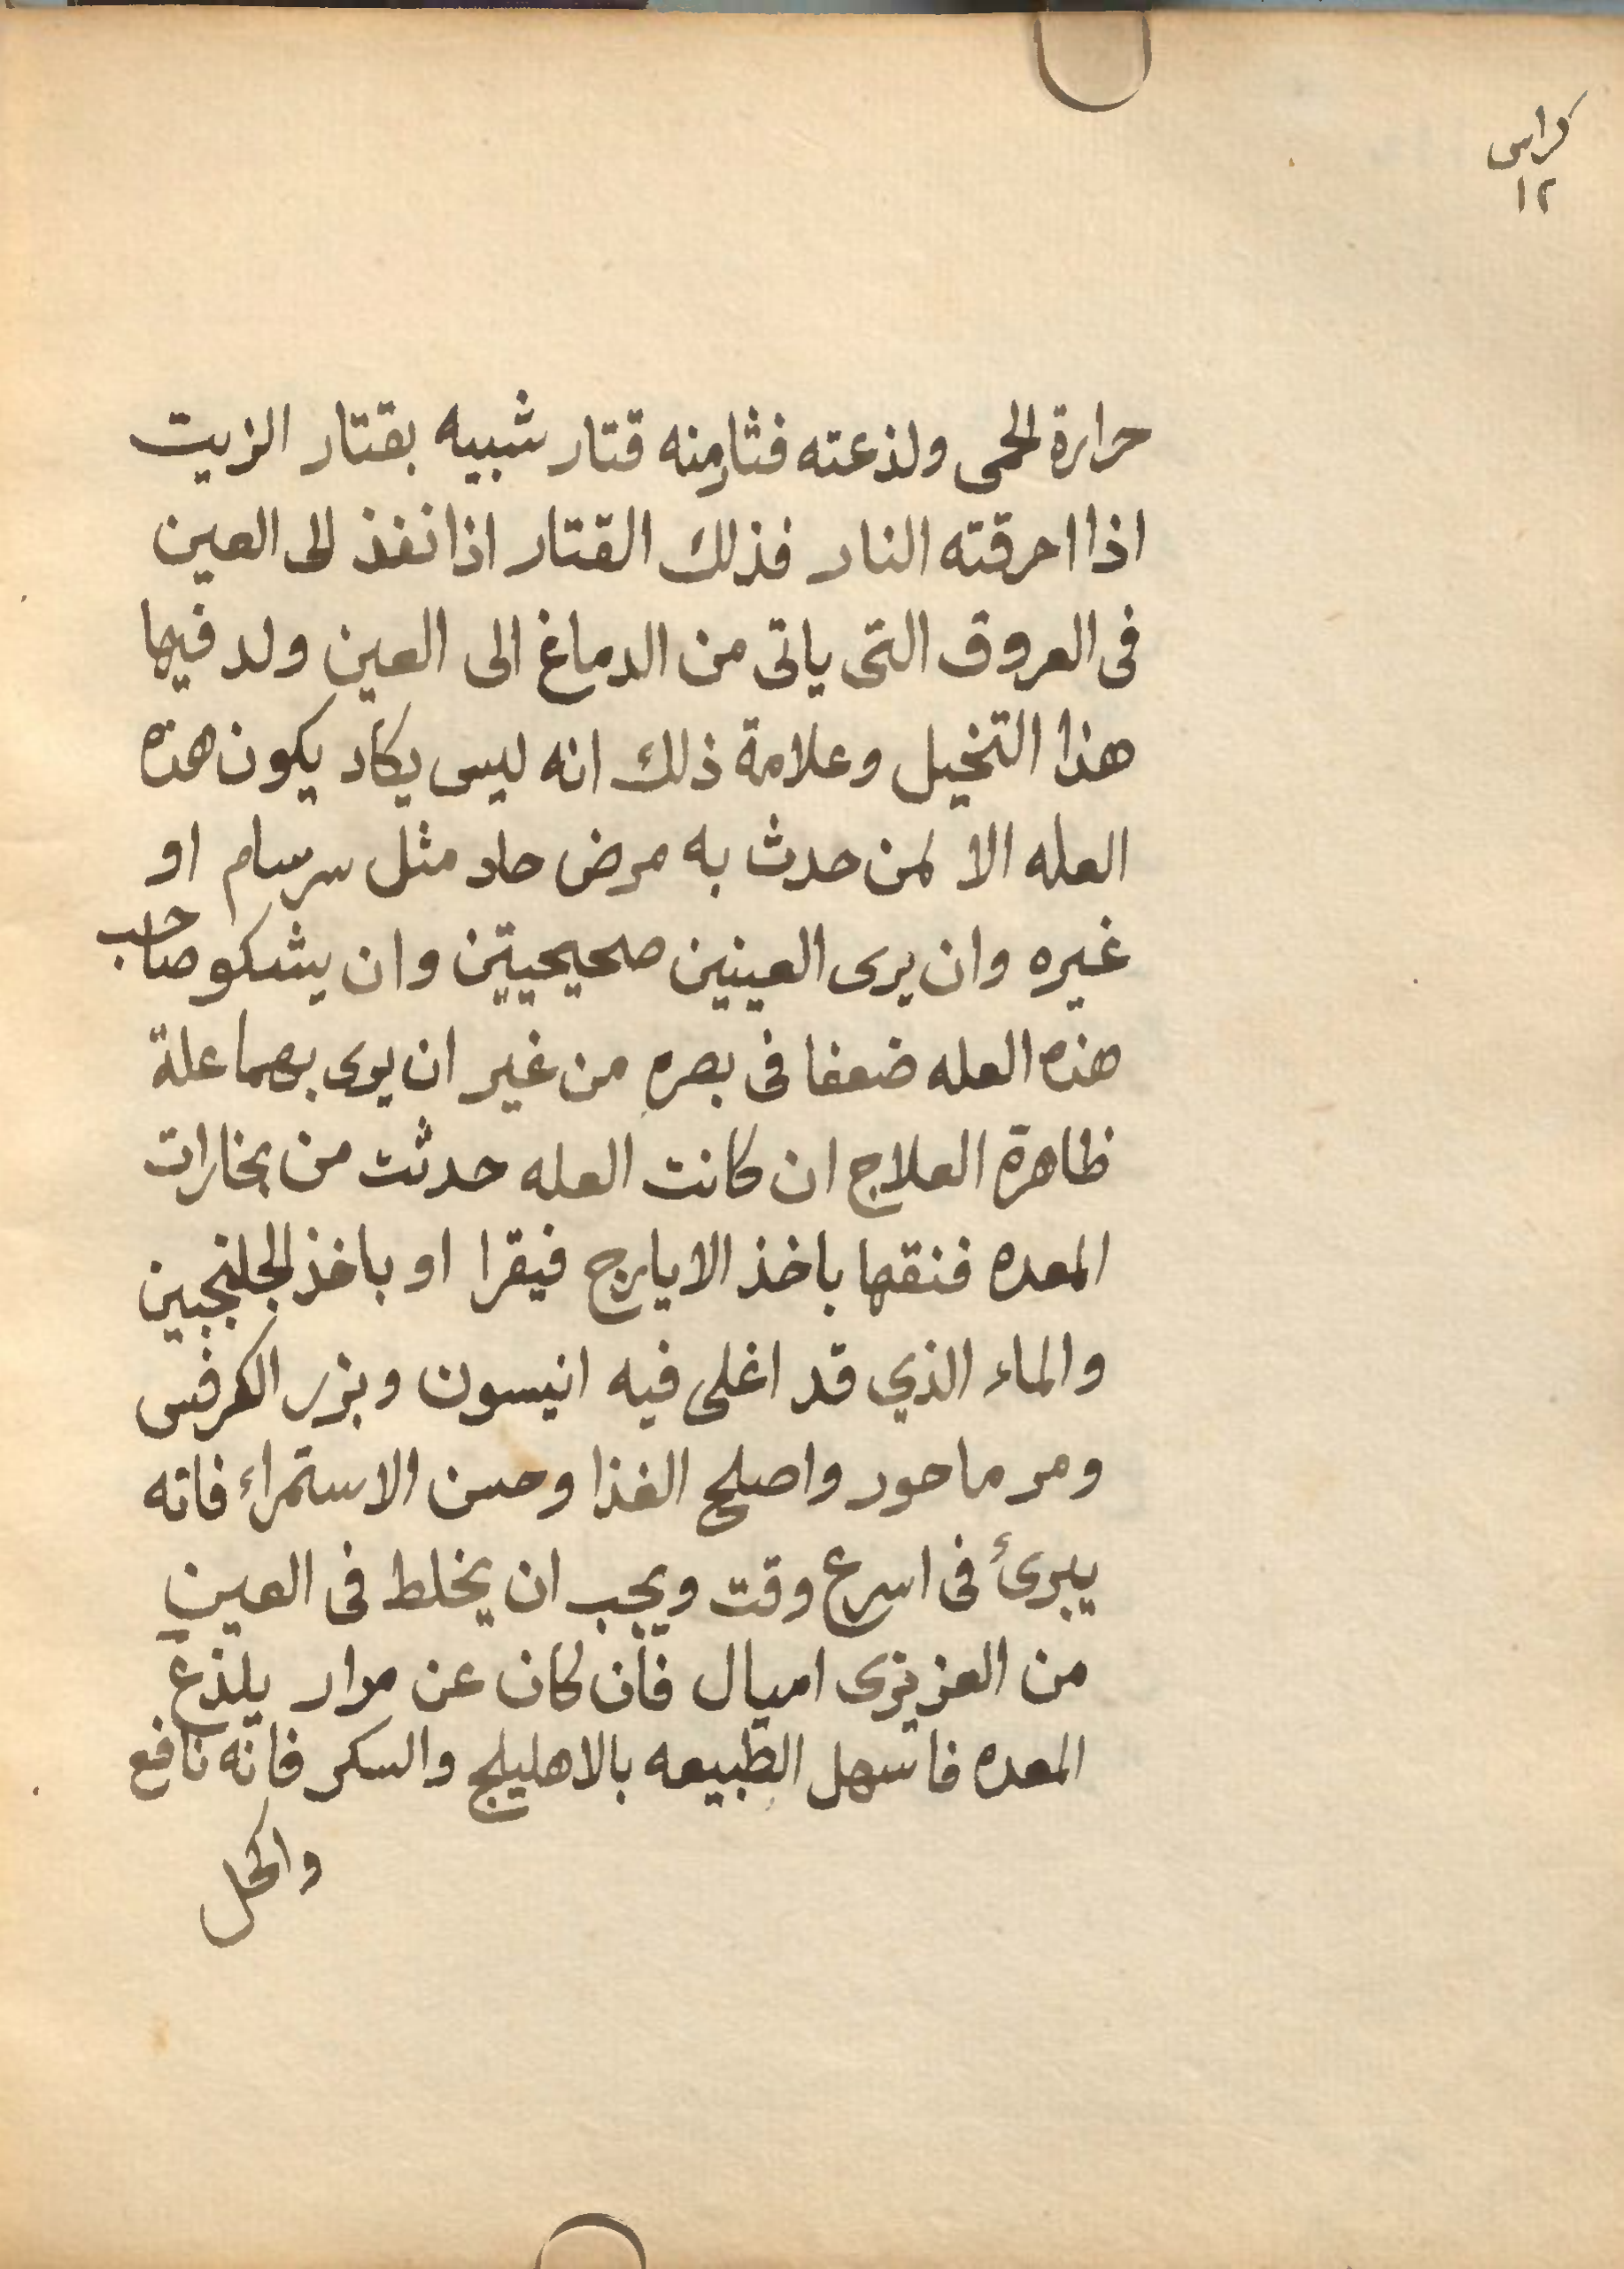 كراس
١٢
حرارة الحمى ولذعته فثار منه قتار شبيه بقتار الزيت
اذا احرقته النار فذلك القتار اذا نفذ الى العين
فى العروق التى ياتى من الدماغ الى العين ولد فيها
هذا التخيل وعلامة ذلك انه ليس يكاد يكون هذه
العله الا لمن حدث به مرض حاد مثل سرسام او
غيره وان يرى العينين صحيحيتين وان يشكو صاحب
هذه العله ضعفا فى بصره من غير ان يرى بهما علة
ظاهرة العلاج ان كانت العله حدثت من بخارات
المعده فنقها باخذ الايارج فيقرا او باخذ الجلنجبين
والماء الذي قد اغلى فيه انيسون وبزر الكرفس
ومر ماحور واصلح الغذا وحسن الاستمراء فانه
يبرئ فى اسرع وقت ويجب ان يخلط فى العين
من العزيزى اميال فان كان عن مرار يلذع
المعده فاسهل الطبيعه بالاهليلج والسكر فانه نافع
والكحل